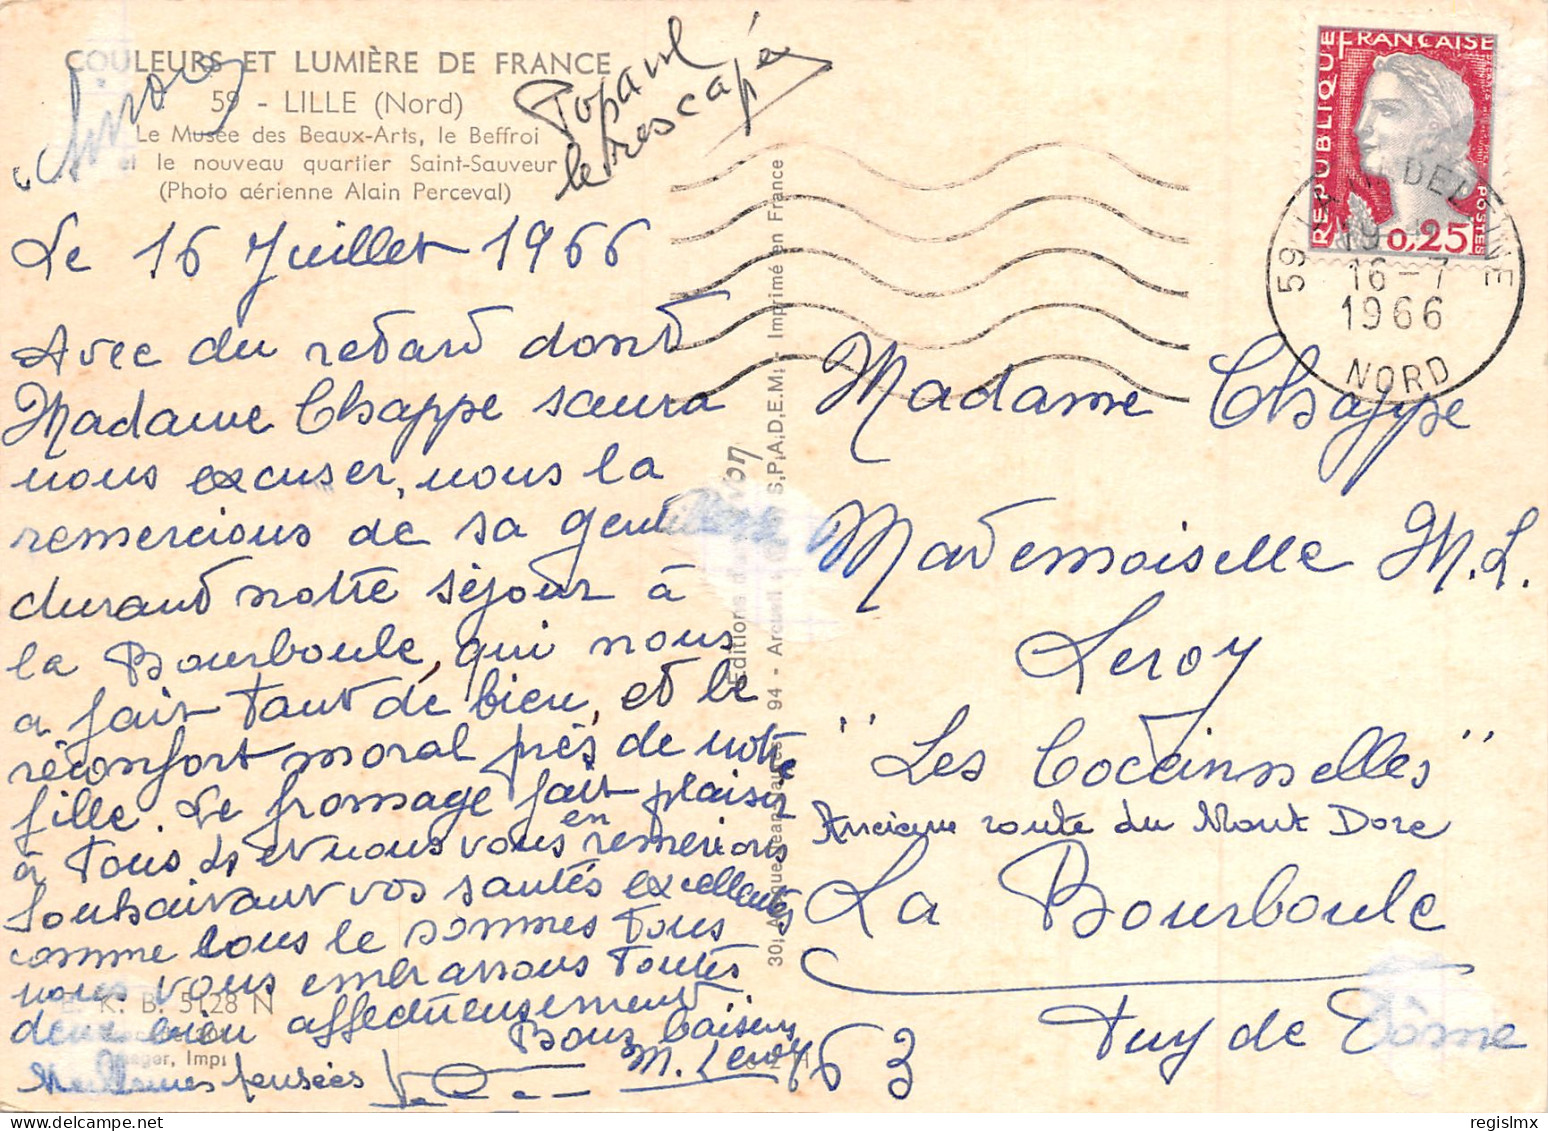 COULEURS ET LUMIÈRE DE FRANCE
59 - LILLE (Nord)
Le Musée des Beaux-Arts, le Beffroi
et le nouveau quartier Saint-Sauveur
(Photo aérienne Alain Perceval)
Popaul
le rescapé
Le 16 Juillet 1966
Avec du retard dont
Madame Chappe saura
nous excuser, nous la
remercions de sa gentillesse
durant notre séjour à
la Bourboule, qui nous
a fait tant de bien, et le
réconfort moral près de notre
fille. Le fromage fait plaisir
à tous et nous vous en remercions
Souhaitant vos santés excellentes
comme nous le sommes tous
nous vous embrassons toutes
deux bien affectueusement
Bons baisers
Meilleures pensées
M. Leroy
E. K. B. 5128 N
Draeger, Imp.
Editions d'
30, A 94 - Arcueil S.P.A.D.E.M. - Imprimé en France
RÉPUBLIQUE FRANÇAISE
POSTES
0,25
59 LA MADELEINE
19
16 - 7
1966
NORD
Madame Chappe
Mademoiselle M.L.
Leroy
"Les Coccinnelles"
Ancienne route du Mont Dore
La Bourboule
Puy de Dôme
63
regislmx